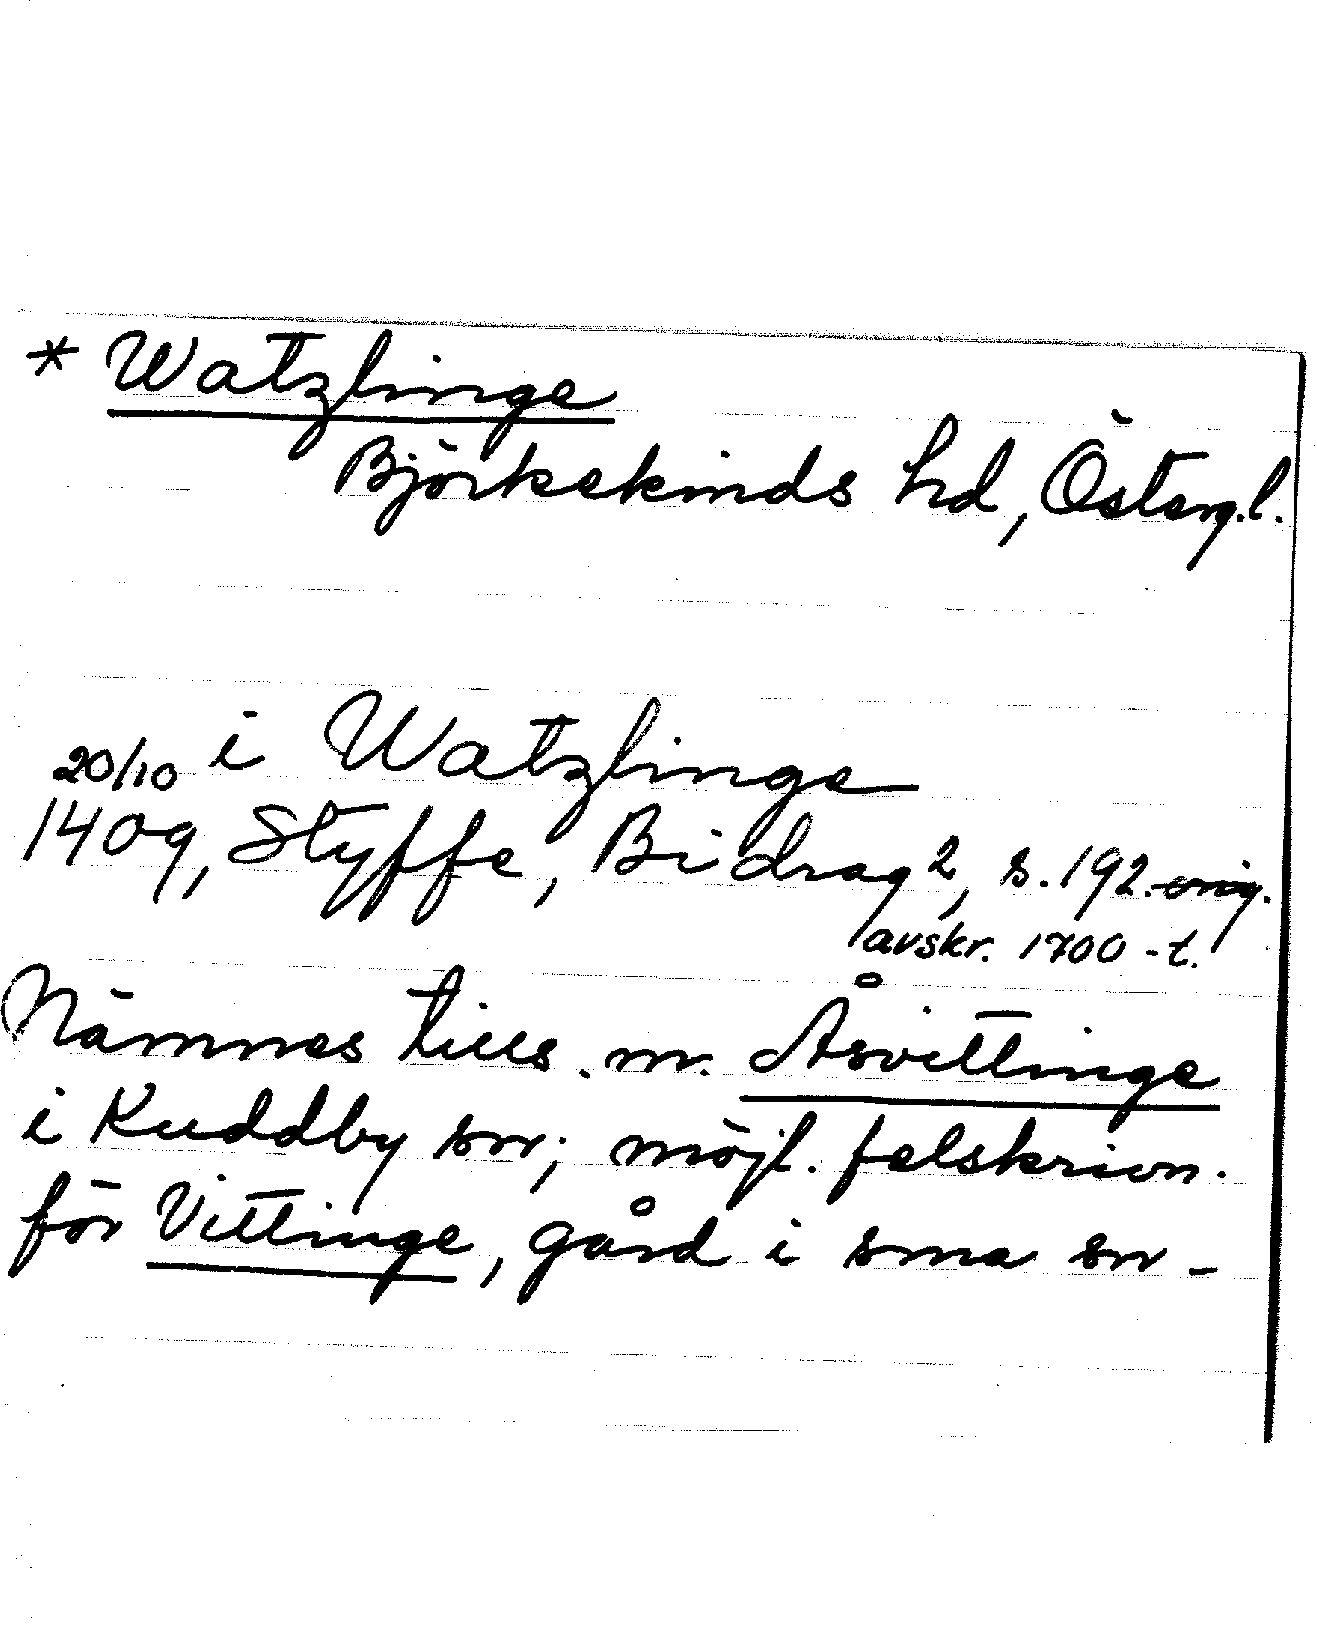 * Watzlinge
Björkekinds hd, Östergl.
i Watzlinge
20/10 1409, Styffe, Bidrag 2, s. 192. orig.
avskr. 1700-t.
Nämnes tills. m. Åsvittinge
i Kuddby sn; möjl. felskrivn.
för Vittinge, gård i sma sn -